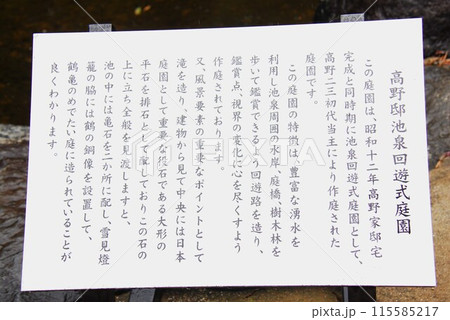 高野邸池泉回遊式庭園
この庭園は、昭和十二年高野家邸宅
完成と同時期に池泉回遊式庭園として、
高野二三初代当主により作庭された
庭園です。
この庭園の特徴は、豊富な湧水を
利用し池泉周囲の水岸、庭橋、樹木林を
歩いて鑑賞できる、回遊路を造り、
鑑賞点、視界の変化に心を尽くすよう
作庭されております。
又、風景要素の重要なポイントとして
滝を造り、建物から見て中央には日本
庭園として重要な役石である大形の
平石を拝石として配しておりこの石の
上に立ち全般を見渡しますと、
池の中には亀石を二か所に配し、雪見燈
籠の脇には鶴の銅像を設置して、
鶴亀のめでたい庭に造られていることが
良くわかります。
115585217